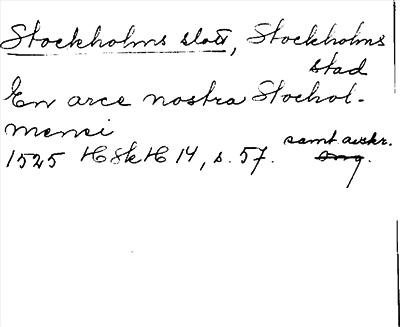 Stockholms slott, Stockholms
stad
En arce nostra Stochol-
mensi
1525 HSkH 14, s. 57. samt avskr.